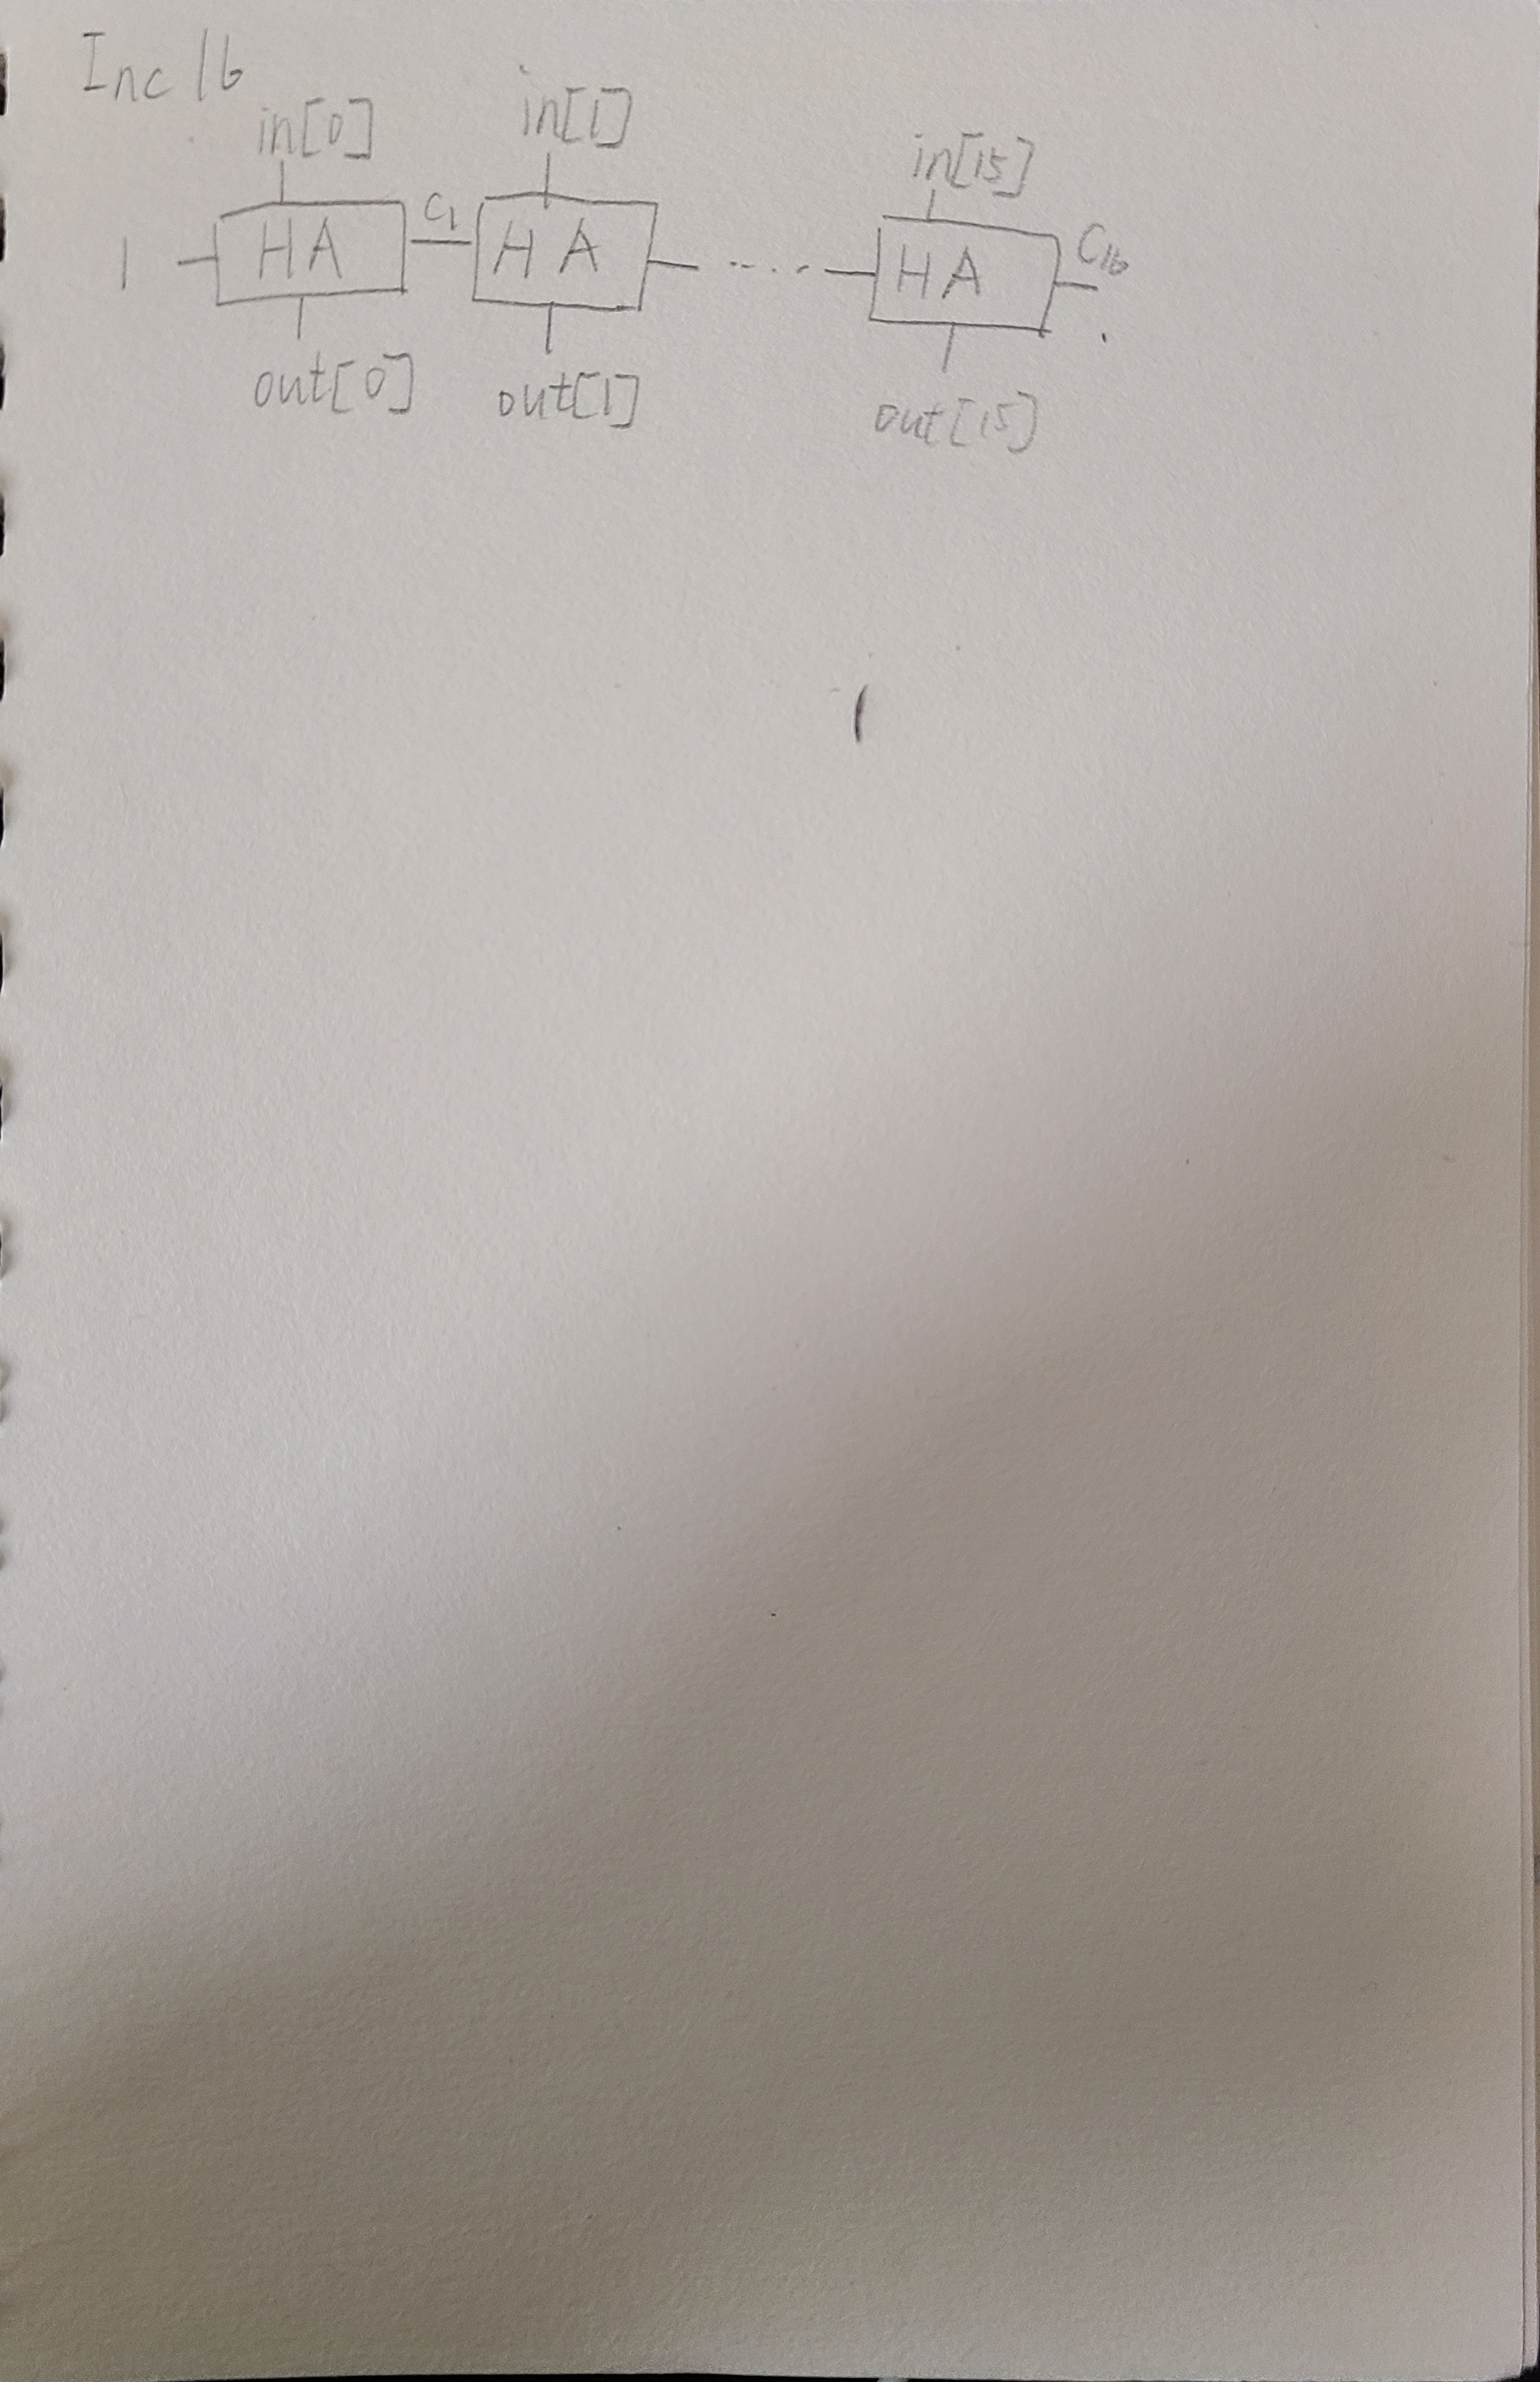 Inc16
in[0] in[1] in[15]
1 HA C1 HA ..... HA C16
out[0] out[1] out[15]